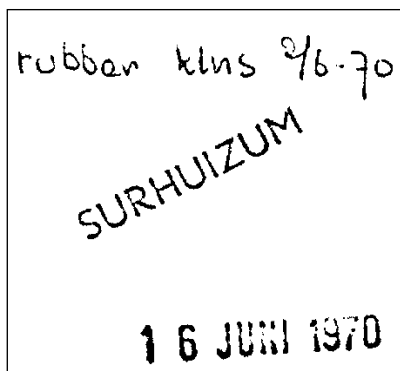 rubber klns 2/6-70
SURHUIZUM
16 JUNI 1970